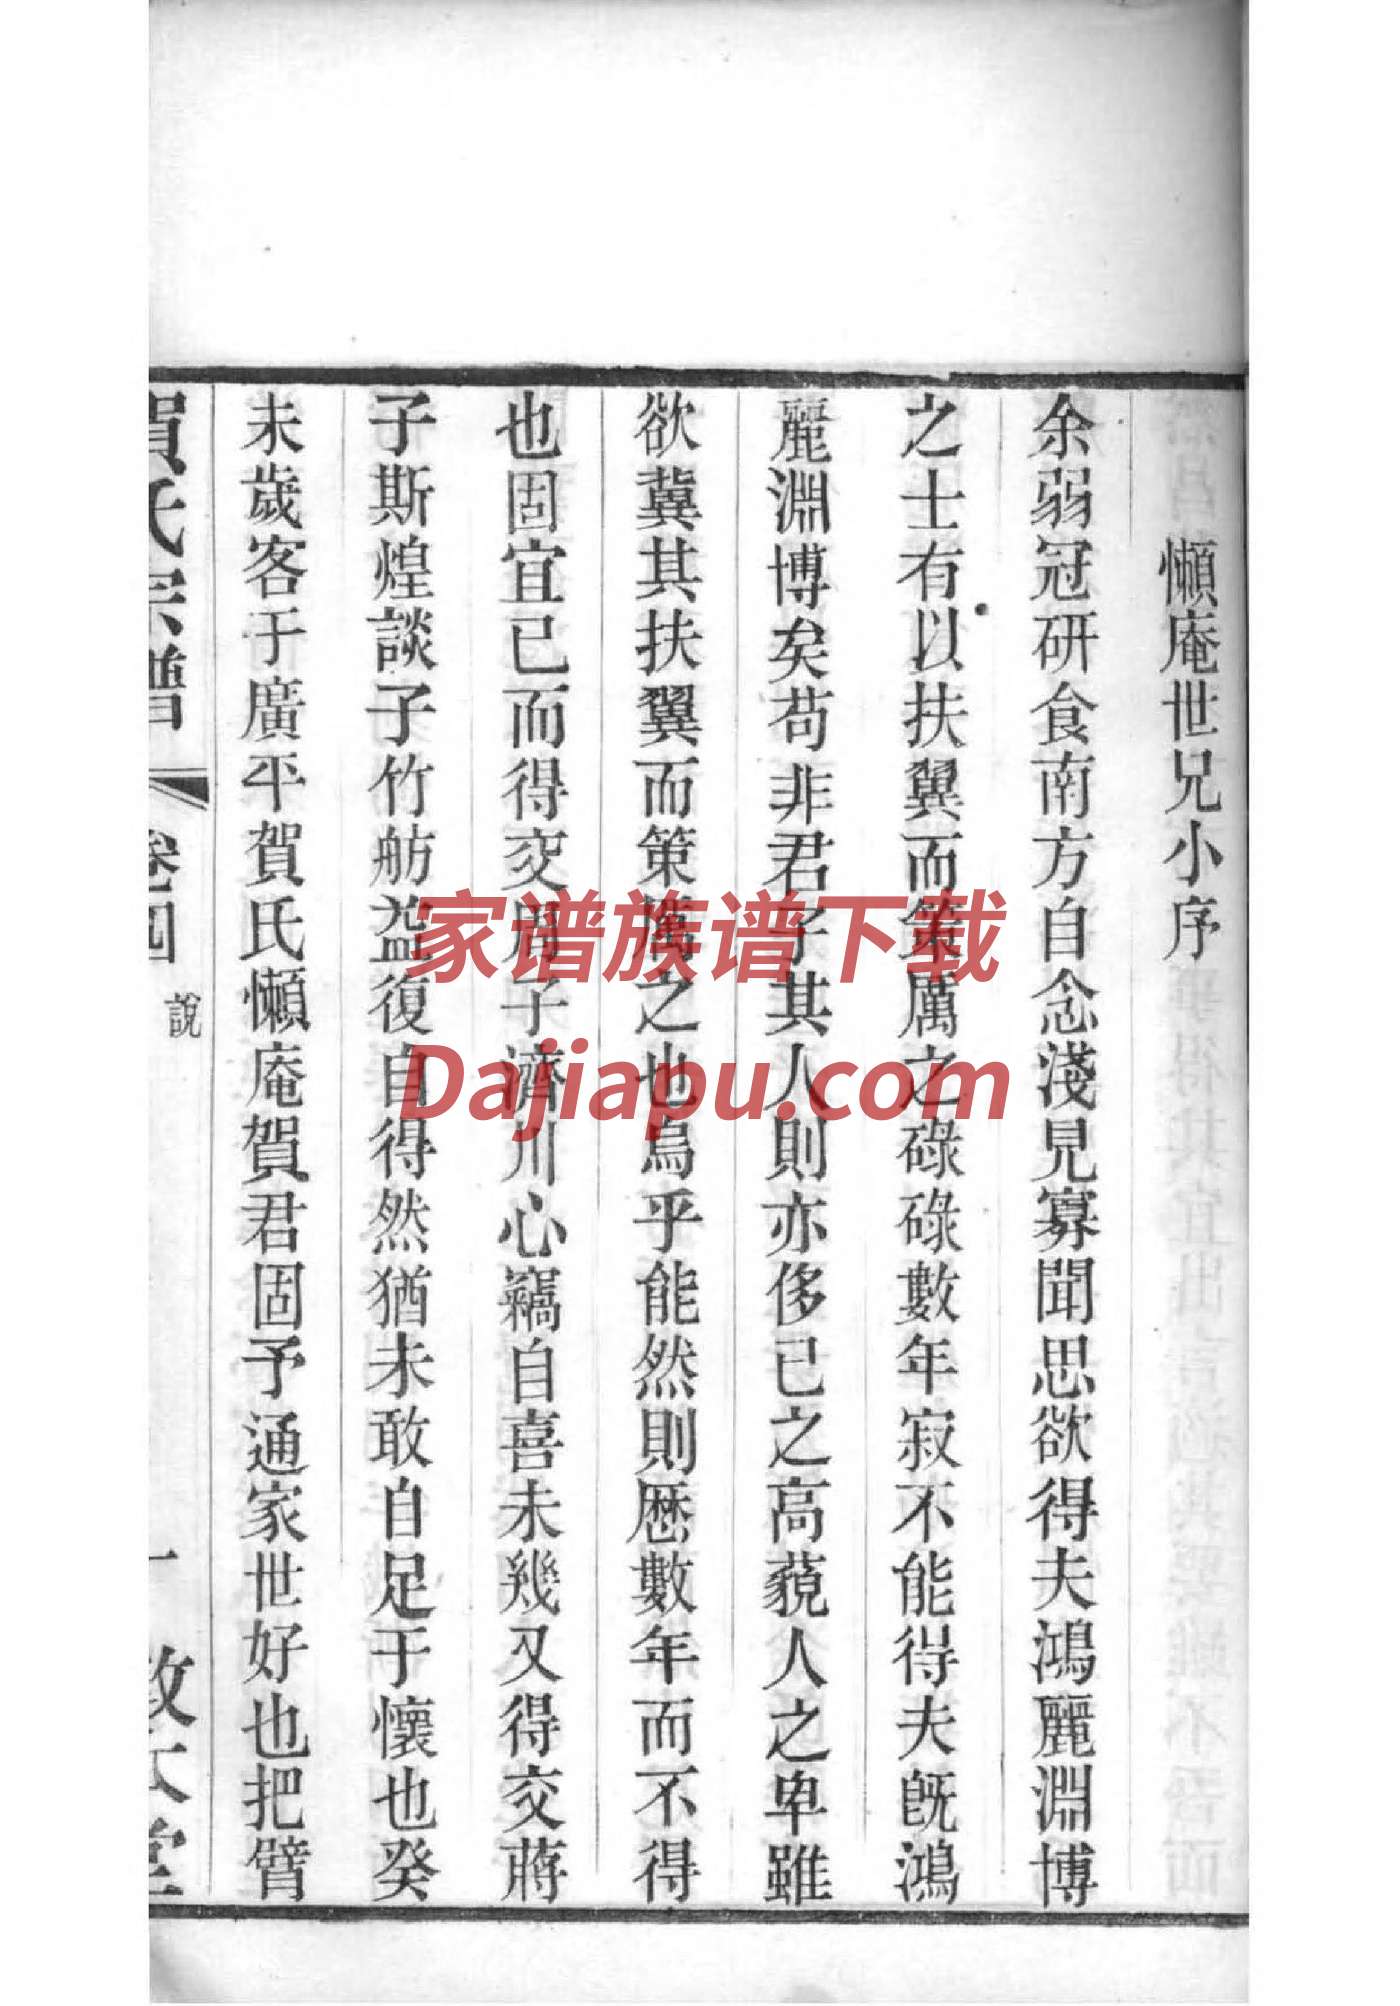 懶庵世兄小序
余弱冠研食南方自念淺見寡聞思欲得夫鴻麗淵博
之士有以扶翼而策厲之碌碌數年寂不能得夫旣鴻
麗淵博矣苟非君子其人則亦侈已之高藐人之卑雖
欲冀其扶翼而策厲之也烏乎能然則歷數年而不得
也固宜已而得交周子濟川心竊自喜未幾又得交蔣
子斯煌談子竹舫益復自得然猶未敢自足于懷也癸
未歲客于廣平賀氏懶庵賀君固予通家世好也把臂
賀氏宗譜
卷四
說
家谱族谱下载
Dajiapu.com